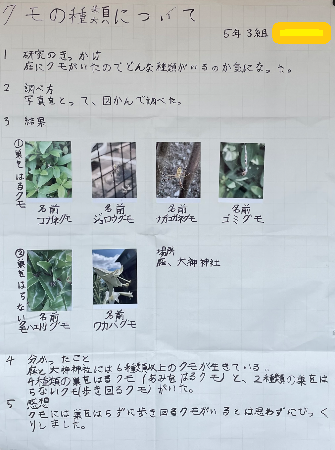 クモの種類について
5年3組
1 研究のきっかけ
庭にクモがいたのでどんな種類がいるのか気になった。
2 調べ方
写真をとって、図かんで調べた。
3 結果
①巣をはるクモ
名前 名前 名前 名前
コガネグモ ジョロウグモ ナガコガネグモ ゴミグモ
②巣をはらないクモ
場所
庭、大神神社
名前 名前
ハエトリグモ ワカバグモ
4 分かったこと
庭と大神神社には6種類以上のクモが生きている。
4種類の巣をはるクモ(あみをはるクモ)と、2種類の巣をは
らないクモ(歩き回るクモ)がいた。
5 感想
クモには巣をはらずに歩き回るクモがいるとは思わずにびっく
りしました。